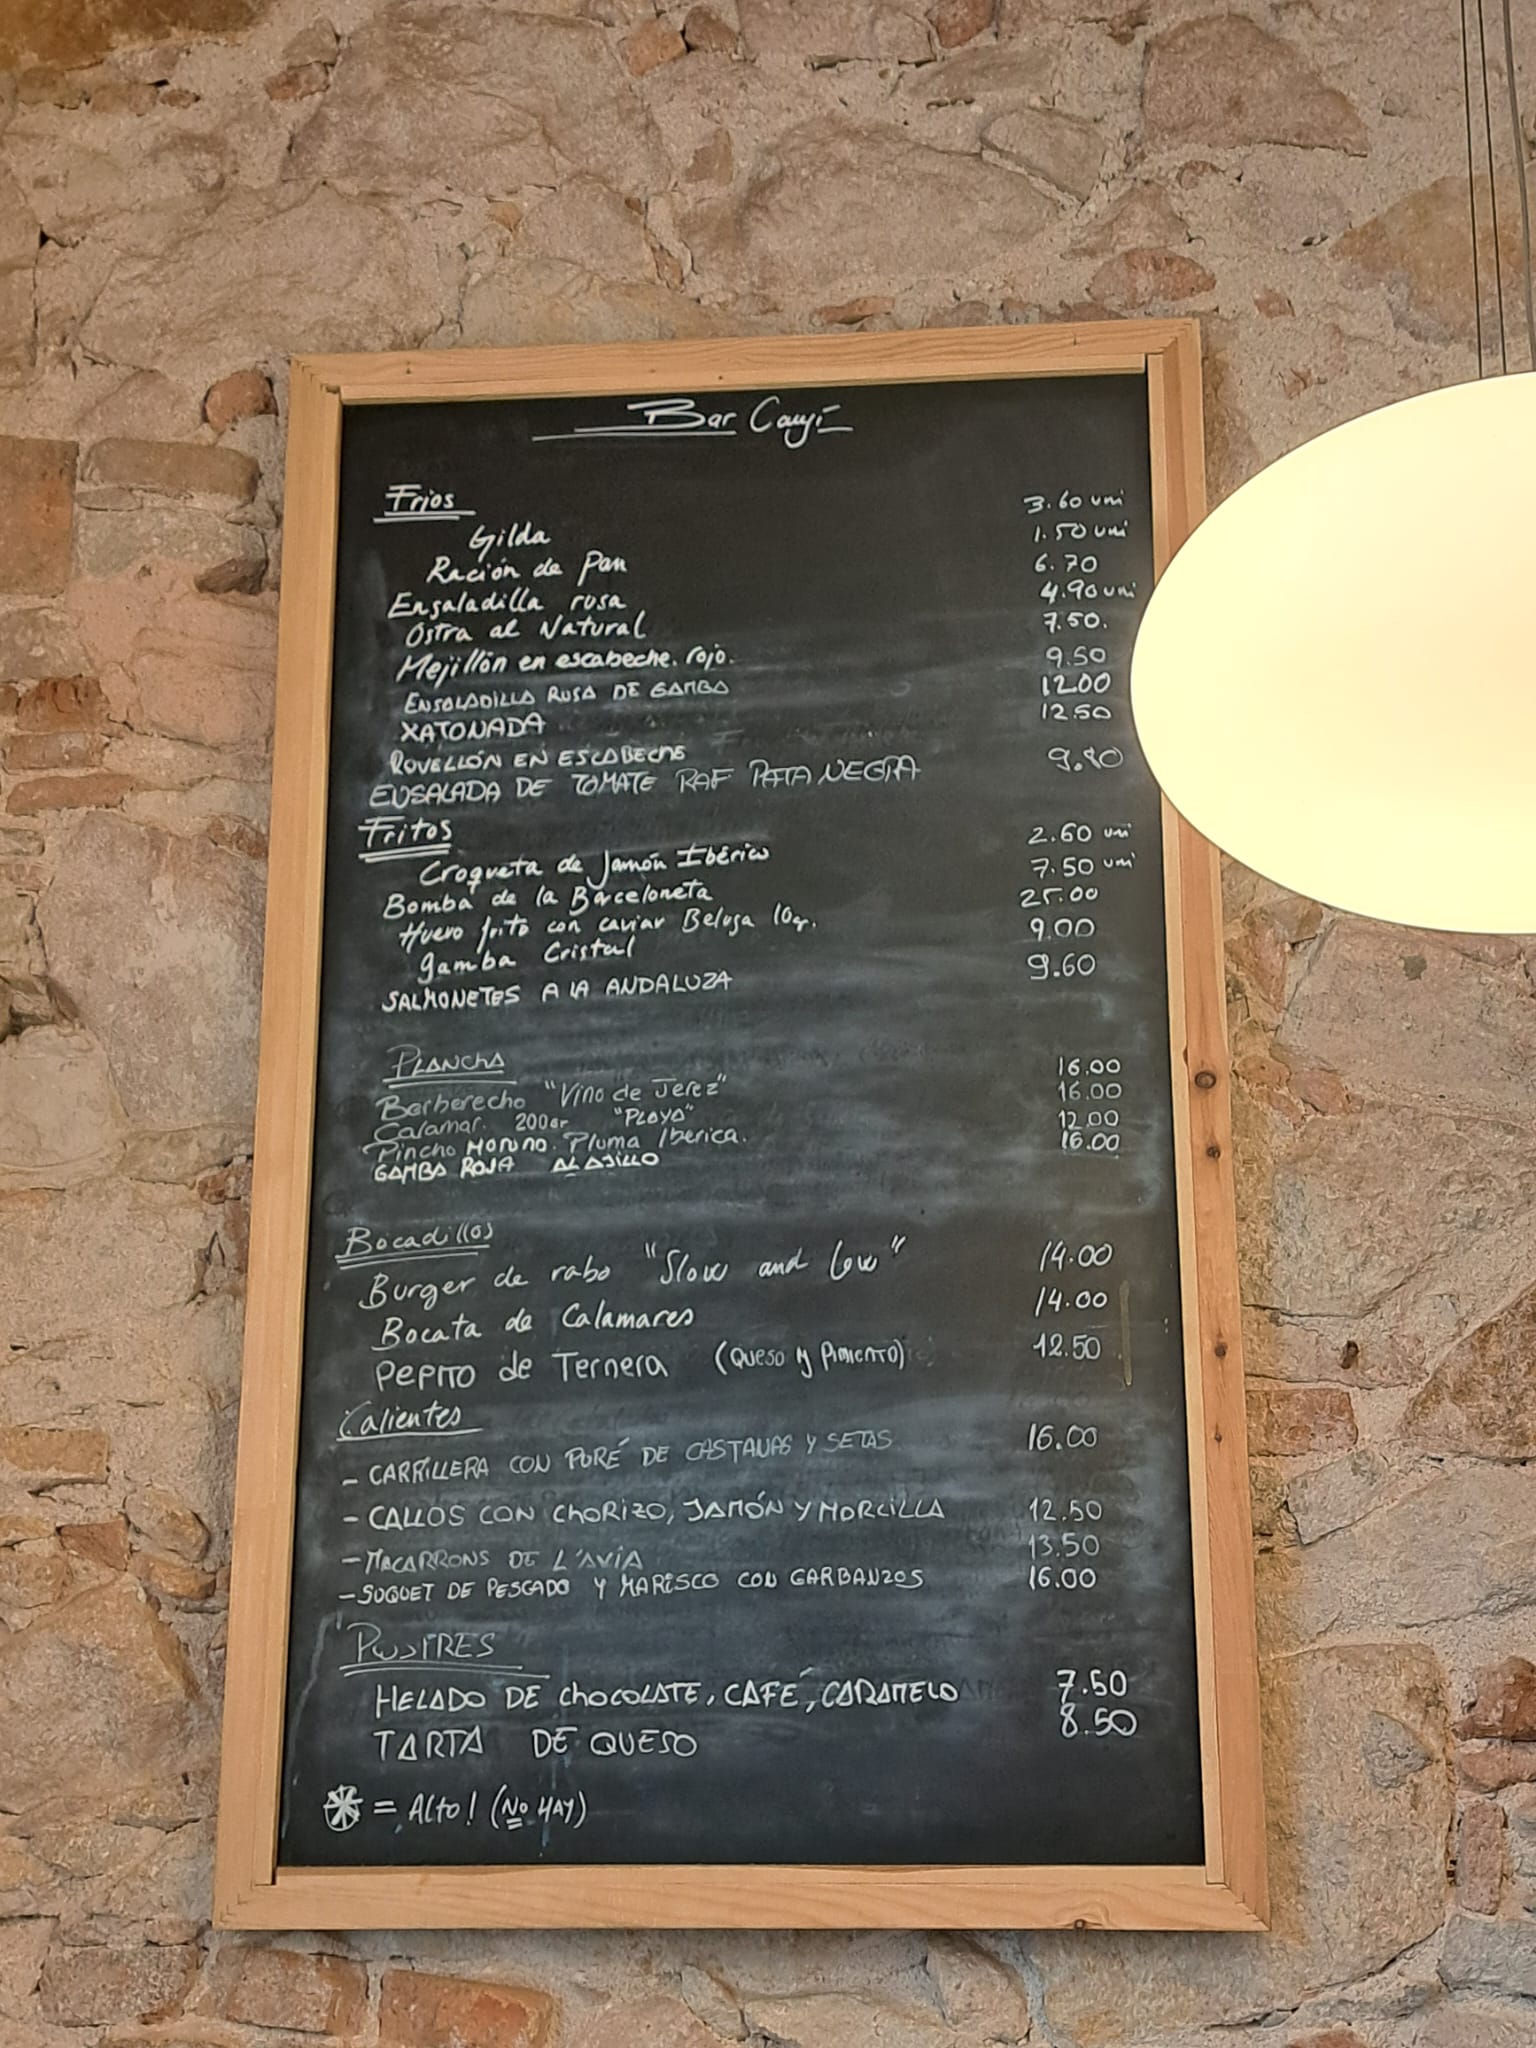 Bar Cañí
Fríos
Gilda 3.60 uni
Ración de Pan 1.50 uni
Ensaladilla rusa 6.70
Ostra al Natural 4.90 uni
Mejillón en escabeche rojo. 7.50.
ENSALADILLA RUSA DE GAMBA 9.50
XATONADA 12.00
ROVELLÓN EN ESCABECHE 12.50
ENSALADA DE TOMATE RAF PATA NEGRA 9.80
Fritos
Croqueta de Jamón Ibérico 2.60 uni
Bomba de la Barceloneta 7.50 uni
Huevo frito con caviar Beluga 10gr. 25.00
Gamba Cristal 9.00
SALMONETES A LA ANDALUZA 9.60
PLANCHA
Berberecho "Vino de Jerez" 16.00
Calamar. 200gr "PLAYA" 16.00
Pincho MORUNO. Pluma Iberica. 12.00
GAMBA ROJA AL AJILLO 16.00
Bocadillos
Burger de rabo "Slow and low" 14.00
Bocata de Calamares 14.00
PEPITO de Ternera (QUESO Y PIMIENTO) 12.50
Calientes
- CARRILLERA CON PURÉ DE CASTAÑAS Y SETAS 16.00
- CALLOS CON CHORIZO, JAMÓN Y MORCILLA 12.50
- MACARRONS DE L'AVIA 13.50
- SUQUET DE PESCADO Y MARISCO CON GARBANZOS 16.00
POSTRES
HELADO DE CHOCOLATE, CAFÉ, CARAMELO 7.50
TARTA DE QUESO 8.50
= Alto! (No HAY)